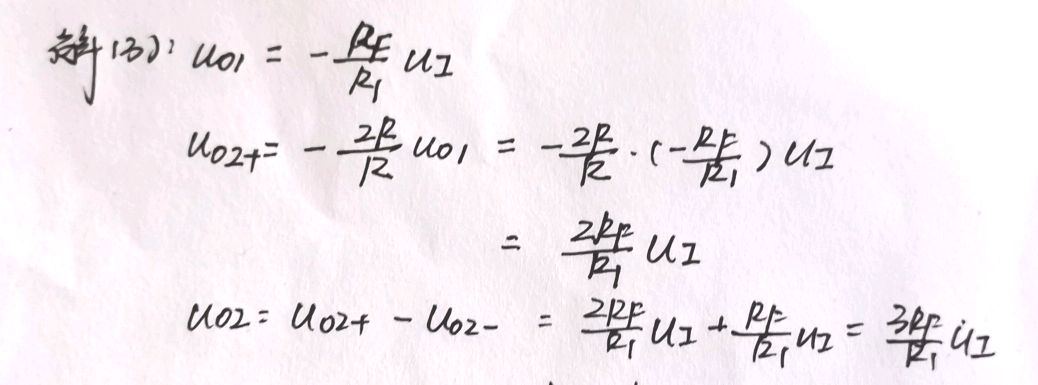 解(3): u₀₁ = -\frac{R_F}{R_1} u_I
u₀₂₊ = -\frac{2R}{R} u₀₁ = -\frac{2R}{R} · (-\frac{R_F}{R_1}) u_I
= \frac{2R_F}{R_1} u_I
u₀₂ = u₀₂₊ - u₀₂₋ = \frac{2R_F}{R_1} u_I + \frac{R_F}{R_1} u_I = \frac{3R_F}{R_1} u_I